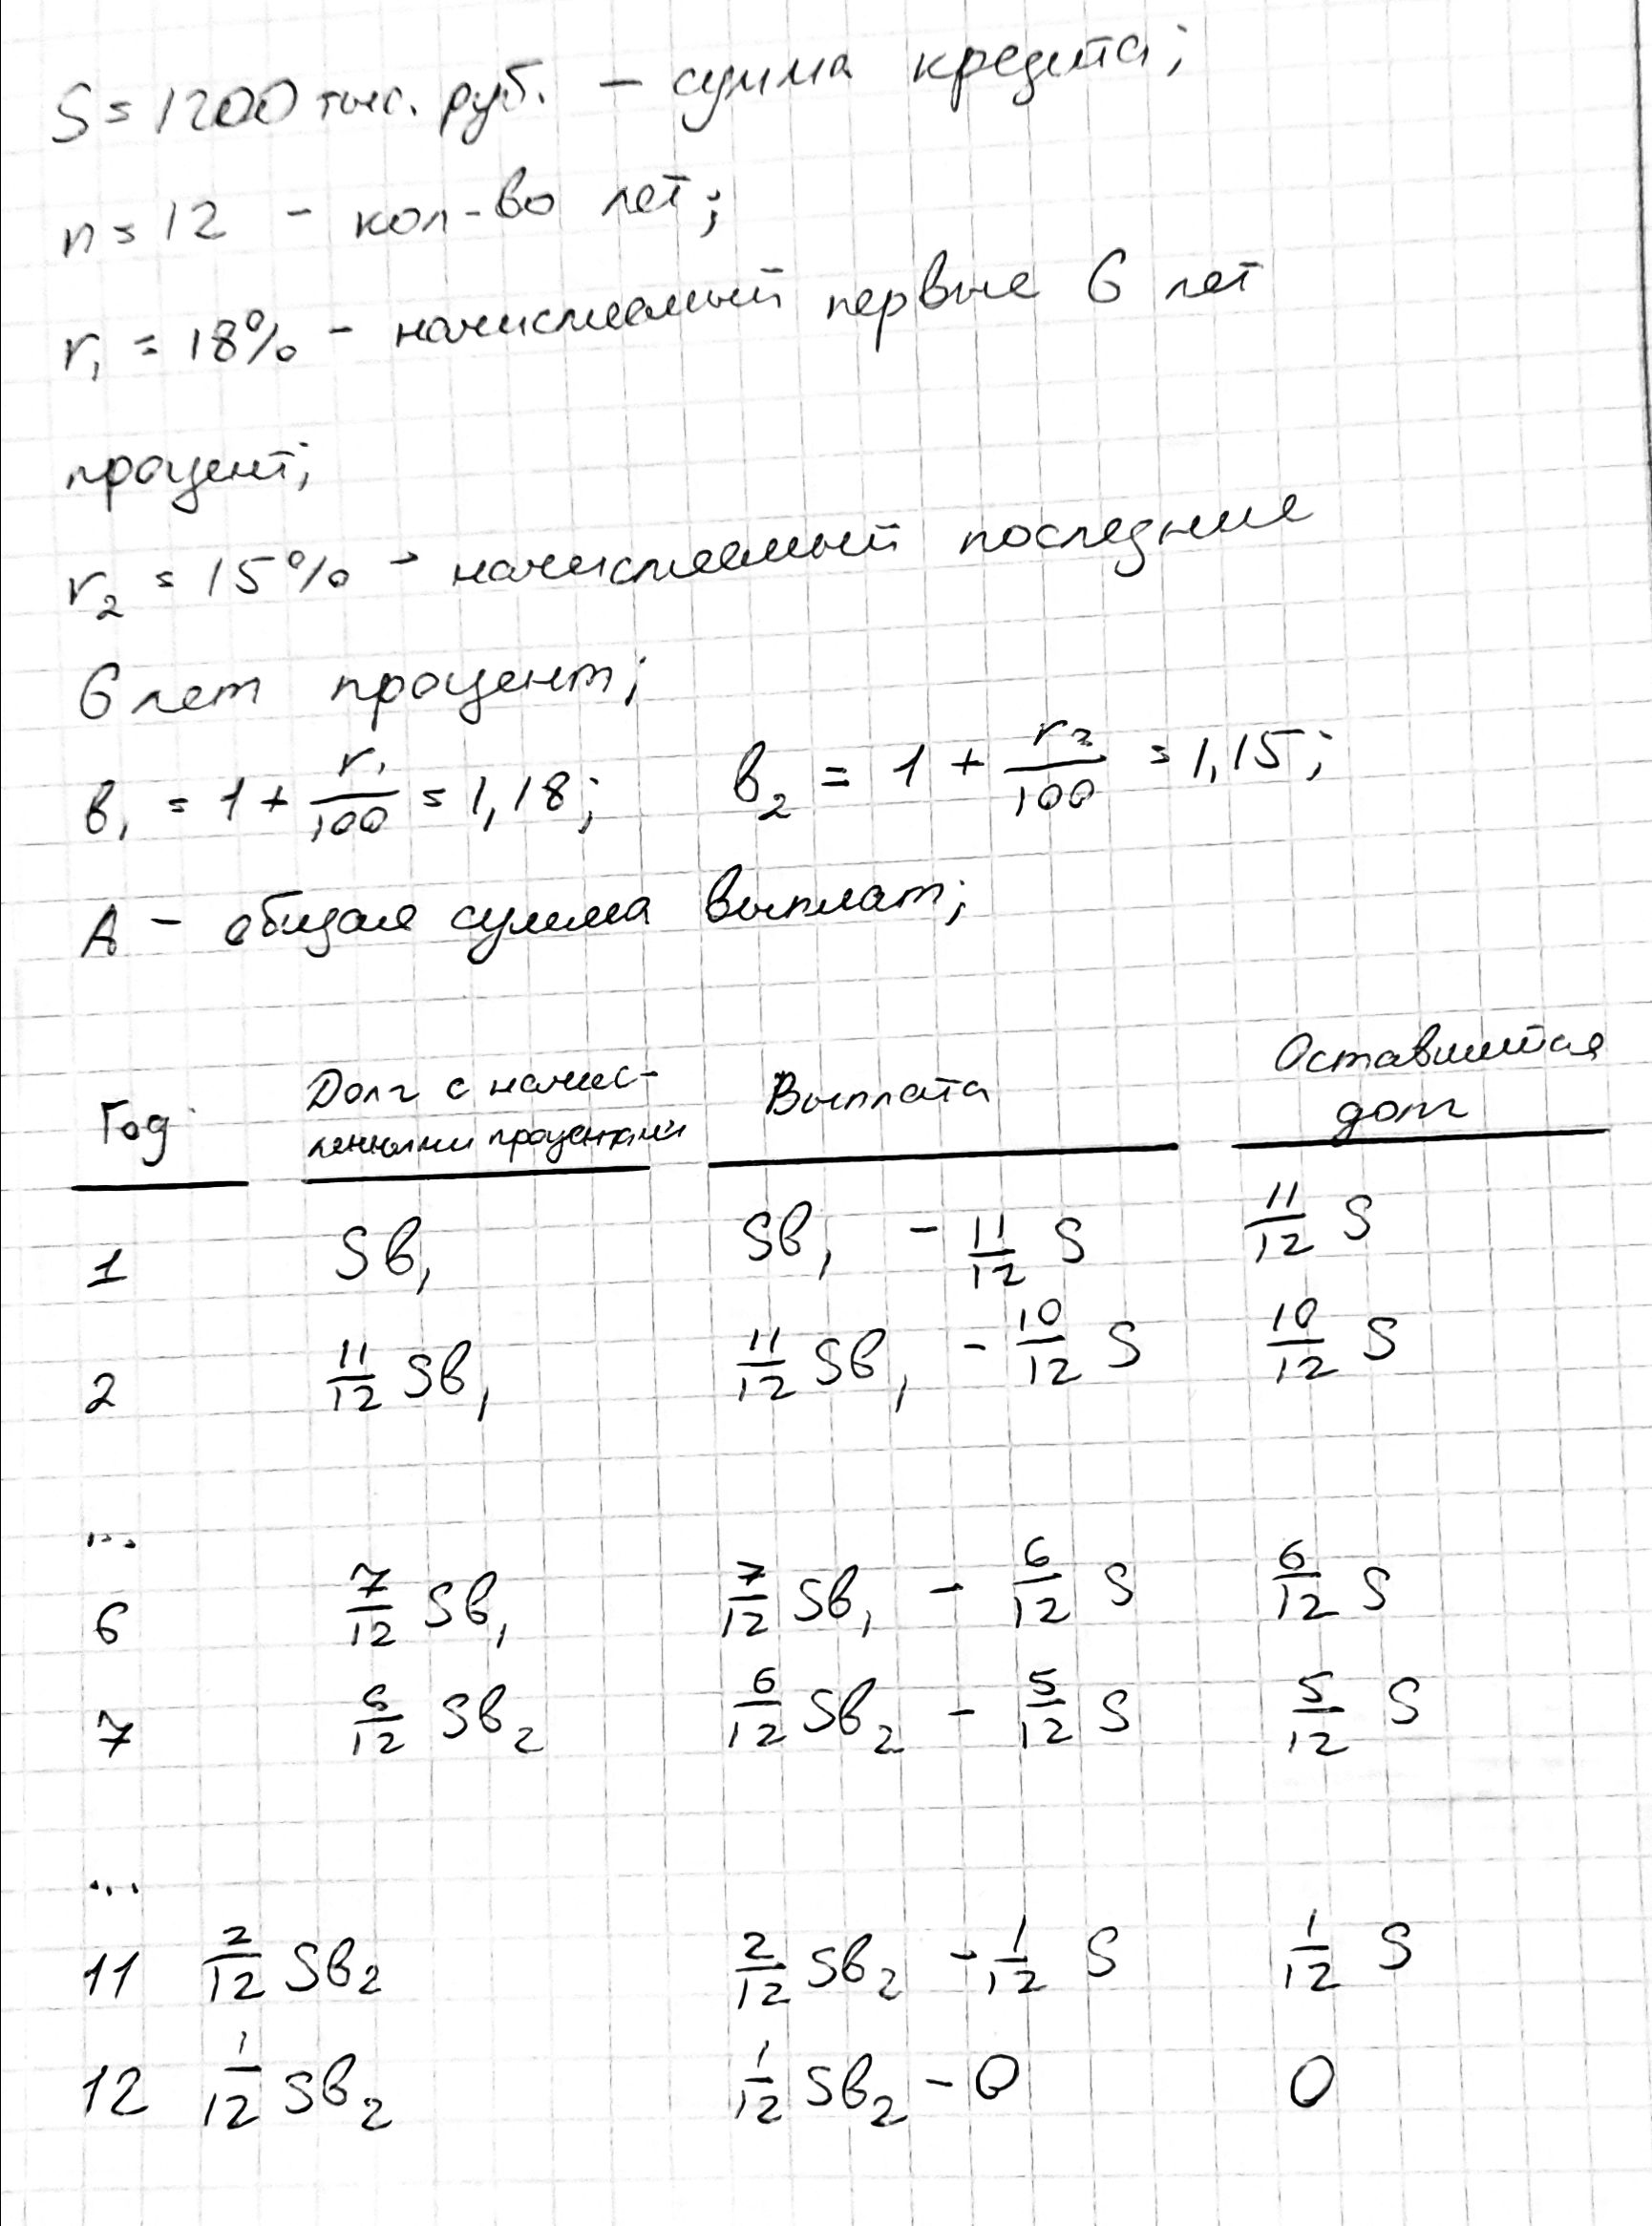 S = 1200 тыс. руб. – сумма кредита;
n = 12 – кол-во лет;
r₁ = 18% – начисляемый первые 6 лет
процент;
r₂ = 15% – начисляемый последние
6 лет процент;
b₁ = 1 + r₁/100 = 1,18; b₂ = 1 + r₂/100 = 1,15;
A – общая сумма выплат;
Год Долг с начисленными процентами Выплата Оставшийся долг
1 Sb₁ Sb₁ – 11/12 S 11/12 S
2 11/12 Sb₁ 11/12 Sb₁ – 10/12 S 10/12 S
...
6 7/12 Sb₁ 7/12 Sb₁ – 6/12 S 6/12 S
7 6/12 Sb₂ 6/12 Sb₂ – 5/12 S 5/12 S
...
11 2/12 Sb₂ 2/12 Sb₂ – 1/12 S 1/12 S
12 1/12 Sb₂ 1/12 Sb₂ – 0 0